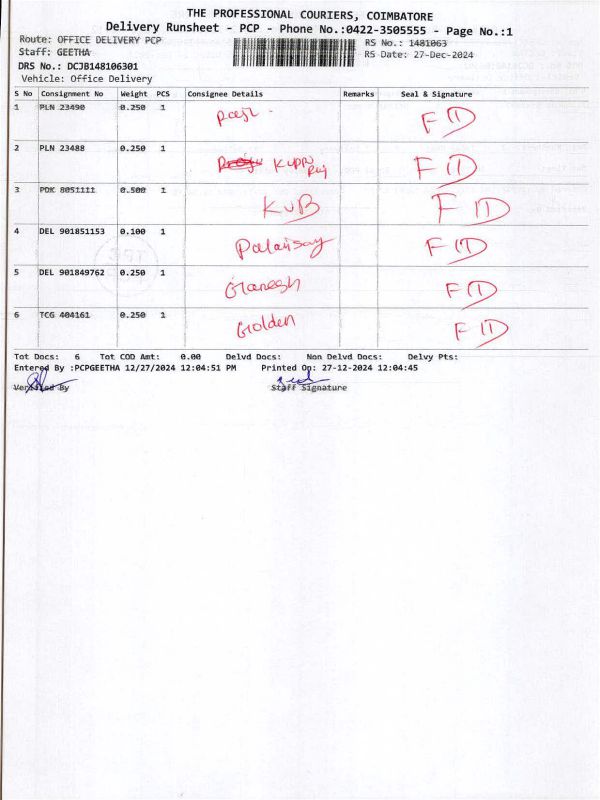 THE PROFESSIONAL COURIERS, COIMBATORE
Delivery Runsheet - PCP - Phone No.:0422-3505555 - Page No.:1
Route: OFFICE DELIVERY PCP
RS No.: 1481063
Staff: GEETHA
RS Date: 27-Dec-2024
DRS No.: DCJB148106301
Vehicle: Office Delivery
S No Consignment No Weight PCS Consignee Details Remarks Seal & Signature
1 PLN 23490 0.250 1 F
2 PLN 23488 0.250 1 Kuppu Raj F
3 PDK 8051111 0.500 1 KVB F
4 DEL 901851153 0.100 1 Palanisay F
5 DEL 901849762 0.250 1 Ganesh F
6 TCG 404161 0.250 1 Golden F
Tot Docs: 6 Tot COD Amt: 0.00 Delvd Docs: Non Delvd Docs: Delvy Pts:
Entered By :PCPGEETHA 12/27/2024 12:04:51 PM Printed On: 27-12-2024 12:04:45
Verified By Staff Signature